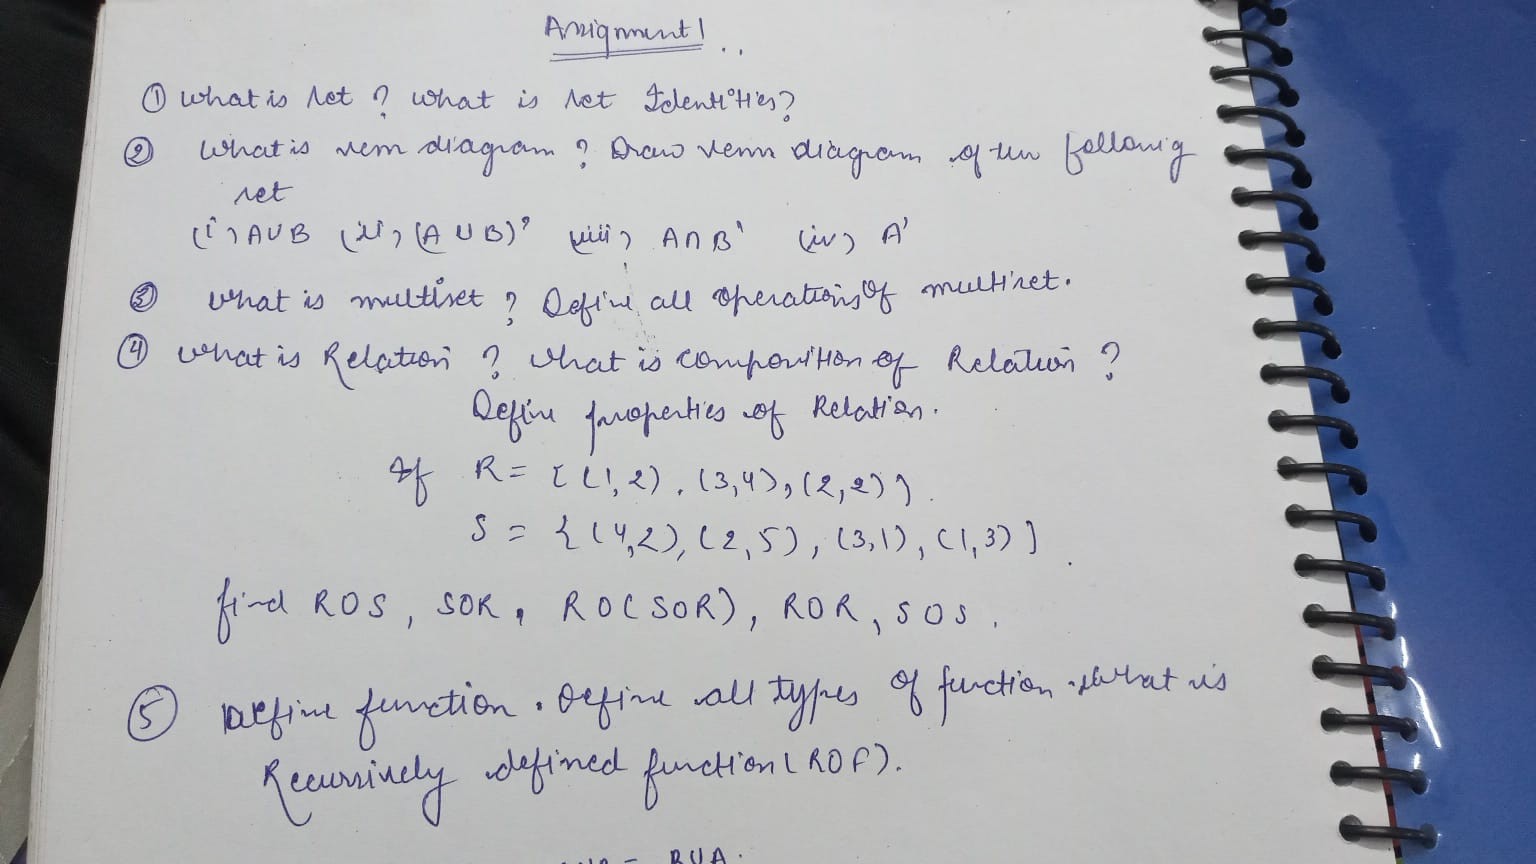 Assignment 1
① What is set ? What is set Identities?
② What is venn diagram ? Draw venn diagram of the following
set
(i) A∪B (ii) (A∪B)' (iii) A∩B' (iv) A'
③ What is multiset ? Define all operations of multiset.
④ What is Relation ? What is composition of Relation ?
Define properties of Relation.
If R = {(1,2), (3,4), (2,2)}.
S = {(4,2), (2,5), (3,1), (1,3)}.
find ROS, SOR, RO(SOR), ROR, SOS.
⑤ Define function. Define all types of function. What is
Recursively defined function (ROF).
= BUA.